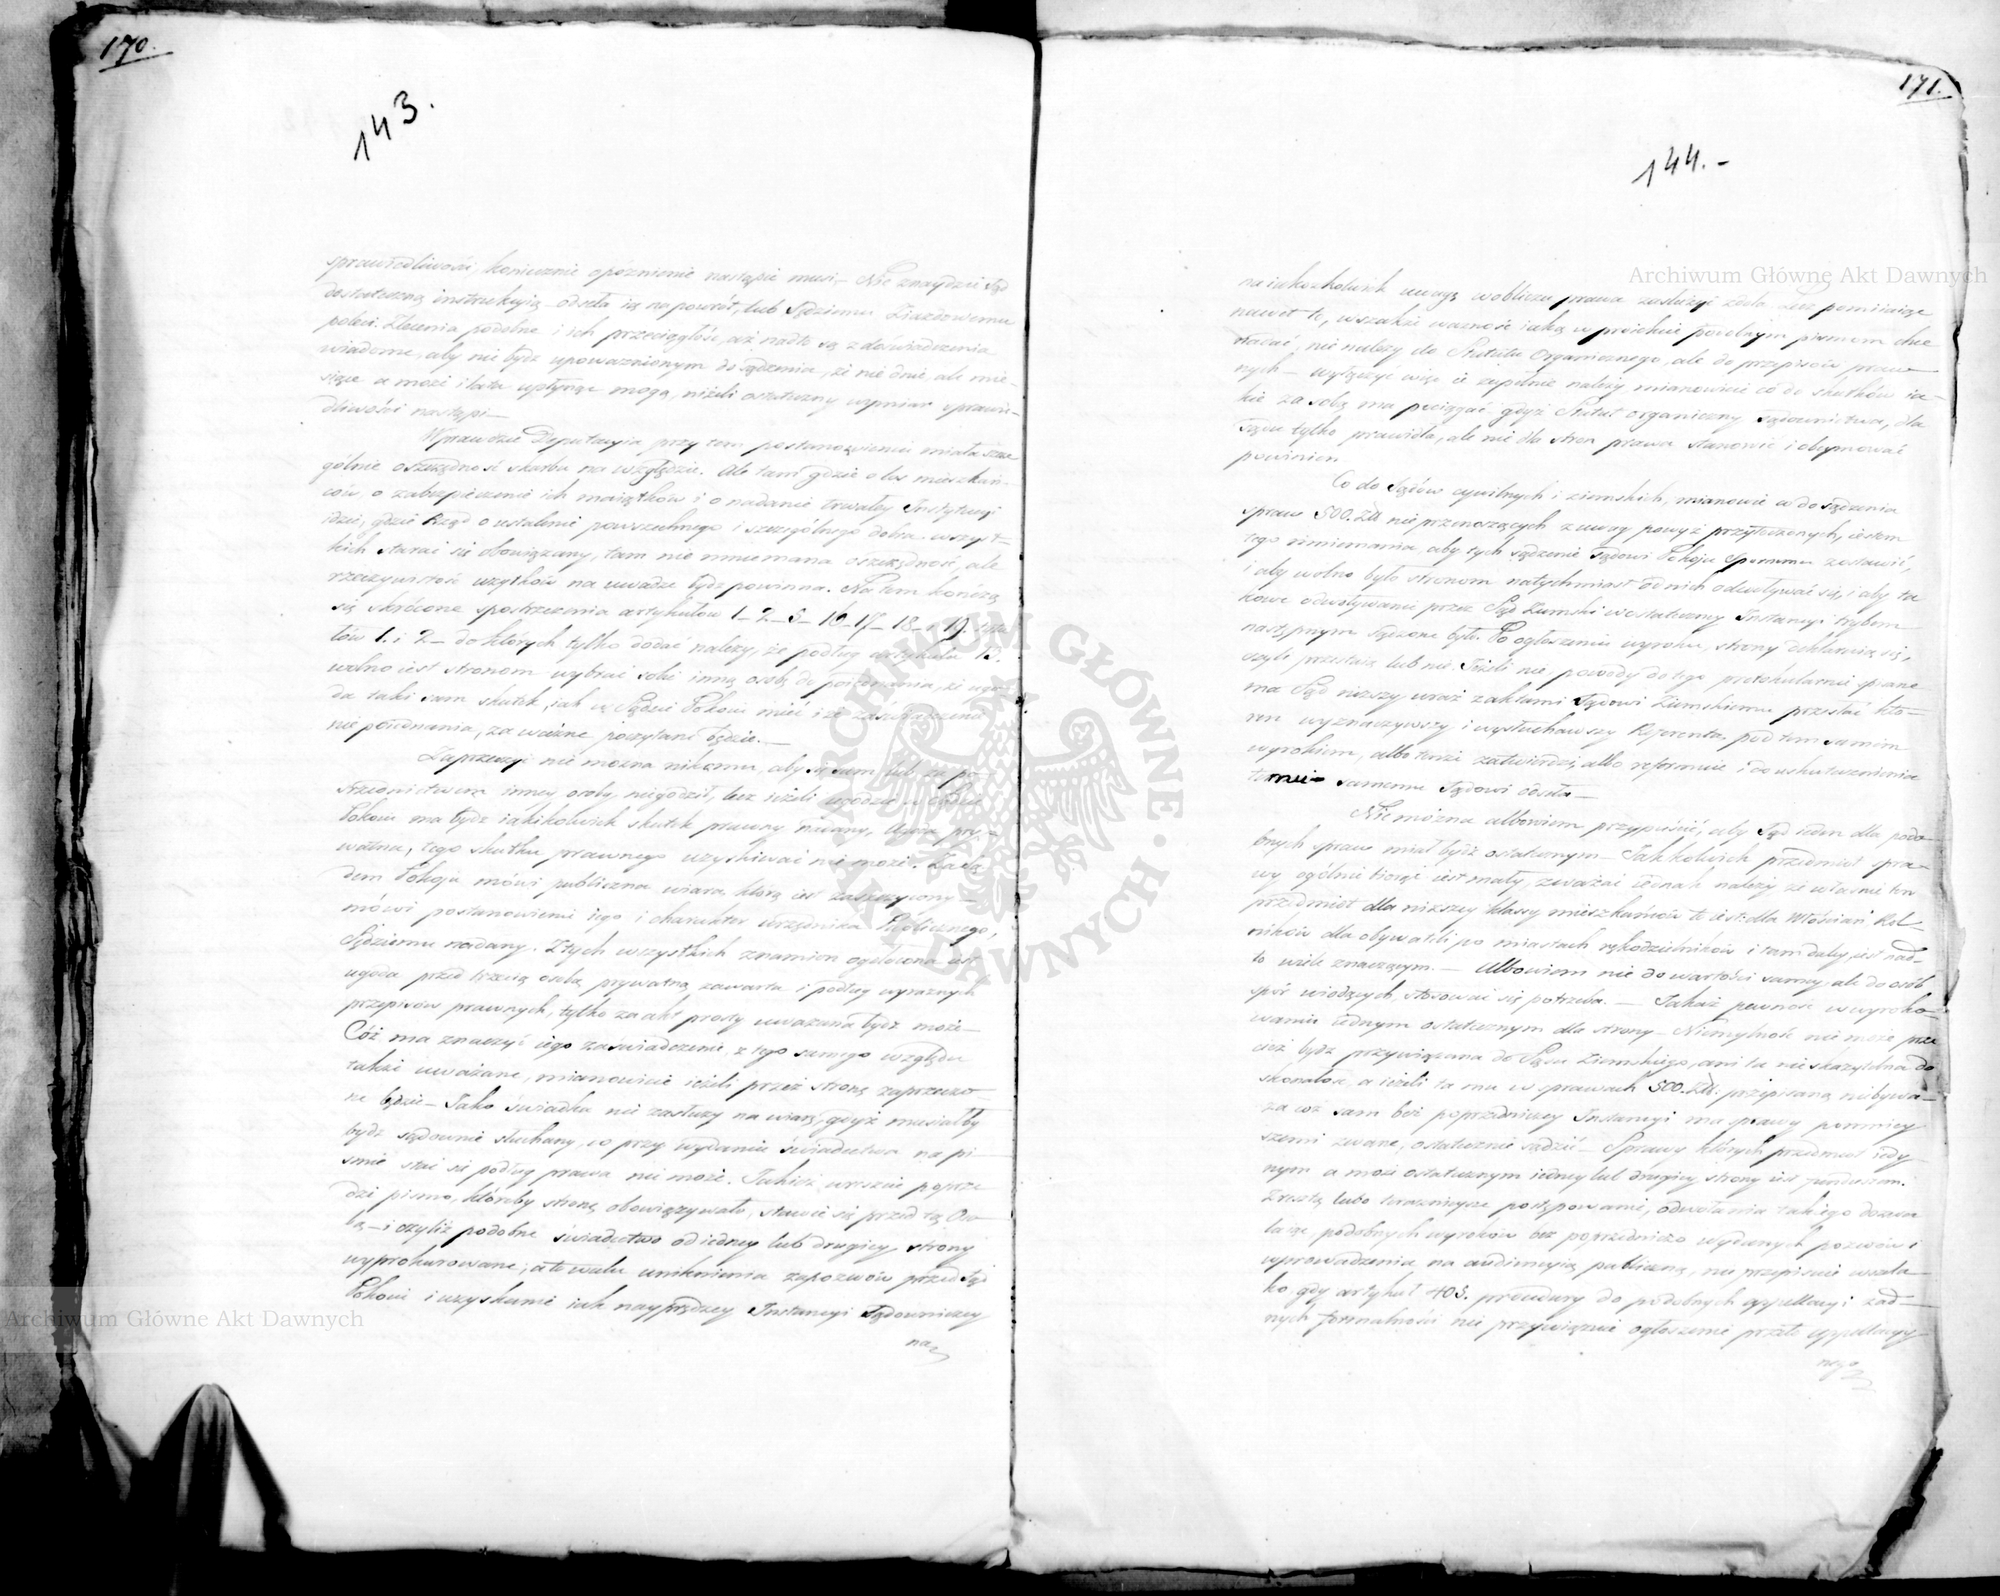 170.
143.
sprawiedliwości, koniecznie opóźnienie nastąpić musi,— Nie znaydzie Sąd
dostateczną instrukcyią odseła ią na powrót, lub Sędziemu Ziazdowemu
poleci. Zlecenia podobne i ich przeciągłość, aż nadto są z doświadczenia
wiadome, aby nie bydź upoważnionym do sądzenia, że nie dnie, ale mie-
siące a może i lata upłynąć mogą, nizeli ostateczny wymiar sprawie-
dliwości nastąpi—
Wprawdzie Deputacyia przy tem postanowieniu miała szcze
gólnie oszczędność skarbu na względzie. Ale tam gdzie o los mieszkań-
ców, o zabezpieczenie ich maiątków i o nadanie trwałey Instytucyi
idzie, gdzie Rząd o ustalenie powszechnego i szczególnego dobra wszyst-
kich starać się obowiązany, tam nie mniemana oszczędność, ale
rzeczywistość użytków na uwadze bydź powinna. Na tem kończą
się skrócone spostrzeżenia artykułów 1_2_5_16_17_18_i 19. tytu
łów 1. i 2_ do których tylko dodać należy, że podług artykułu 12.
wolno iest stronom wybrać sobie inną osobę do poiednania, że ugo-
da taki sam skutek, iak w Sądzie Pokoiu mieć i że zaświadczenie
nie poiednania, za ważne poczytane będzie.—
Zaprzeczyć nie można nikomu, aby się sam, lub za po-
średnictwem inney osoby niegodził, lecz ieżeli ugodzie w Sądzie
Pokoiu ma bydź iakikolwiek skutek prawny nadany, Ugoda pry-
watna, tego skutku prawnego uzyskiwać nie może. Za Są-
dem Pokoju mówi publiczna wiara, którą iest zaszczycony—
mówi postanowienie iego i charakter urzędnika Publicznego,
Sędziemu nadany. Z tych wszystkich znamion ogołocona iest
ugoda przed trzecią osobą prywatną zawarta i podług wyraznych
przepisów prawnych, tylko za akt prosty uważana bydź może—
Cóż ma znaczyć iego zaświadczenie z tego samego względu
także uważane, mianowicie ieżeli przez stronę zaprzeczo-
ne będzie— Jako świadka nie zasłuży na wiarę, gdyż musiałby
bydź sądownie słuchany, co przy wydaniu świadectwa na pi-
śmie stać się podług prawa nie może. Jakież wreszcie poprze
dzi pismo, któreby stronę obowiązywało, stawić się przed tą Oso-
bą— i czyliż podobne świadectwo od iedney lub drugiey strony
wyprokurowane, a to w celu uniknienia zapozwów przed Sąd
Pokoiu i uzyskanie iak nayprędzey Instancyi Sądowniczey
na
171.
144.-
na iakożkolwiek uwagę w obliczu prawa zasłużyć zdoła. Lecz pomiiaiąc
nawet to, wszakże ważność iaką w processie podobnym pismom chce
nadać, nie należy do Statutu Organicznego, ale do przepisów praw-
nych— wyłączyć więc ie zupełnie należy, mianowicie co do skutków ia-
kie za sobą ma pociągać gdyż Statut organiczny sądownictwa, dla
Sądu tylko prawidła, ale nie dla stron prawa stanowić i obeymować
powinien
Co do Sądów cywilnych i ziemskich, mianowicie do sądzenia
spraw 500. Zł. nie przenoszących z uwag powyż przytoczonych, iestem
tego mniemania, aby tych sądzenie Sądowi Pokoju Spornemu zostawić,
i aby wolno było stronom natychmiast od nich odwoływać się, i aby ta
kowe odwoływanie przez Sąd Ziemski w ostateczney Instancyi trybem
następnym sądzone było. Po ogłoszeniu wyroku, strony deklaruią się,
czyli przestaią lub nie. Jeżeli nie powody do tego protokularnie spisane
ma Sąd niższy wraz z aktami Sądowi Ziemskiemu przesłać któ-
ren wyznaczywszy i wysłuchawszy Referenta pod tem samem
wyrokiem, albo tenże zatwierdzi albo reformuie i do uskutecznienia
temuż samemu Sądowi odseła—
Nie można albowiem przypuścić, aby Sąd ieden dla podo-
bnych spraw miał bydź ostatecznym— Jakkolwiek przedmiot spra-
wy ogólnie biorąc iest mały, zważać iednak należy że właśnie ten
przedmiot dla niższey klassy mieszkańców to iest: dla Włościan Rol-
ników dla obywateli po miastach, rękodzielników i tam daley, iest nad-
to wiele znaczącym.— Albowiem nie do wartości samey, ale do osób
spór wiodących, stosować się potrzeba.— Jakaż pewność w wyroko-
waniu iednym ostatecznym dla strony— Niemylność nie może prze
cież bydź przywiązana do Sądu Ziemskiego, ani ta nieskazitelna do
skonałość, a ieżeli ta mu w sprawach 500. Zł. przepisaną nie bywa—
za cóż sam bez poprzedniczey Instancyi ma sprawy pomniey
szemi zwane, ostatecznie sądzić— Sprawy których przedmiot iedy
nym a może ostatecznym iedney lub drugiey strony iest funduszem.
Zresztą lubo teraznieysze postępowanie, odwołania takiego dozwa
laiąc, podobnych wyroków bez poprzedniczo wydanych pozwów i
wprowadzenia na audiencyią publiczną, nie przepisuie wszela
ko gdy artykuł 403. procedury do podobnych appellacyi żad-
nych formalności nie przywiązuie ogłoszenie przeto appellacyy
nego
Archiwum Główne Akt Dawnych
Archiwum Główne Akt Dawnych
ARCHIWUM GŁÓWNE AKT DAWNYCH